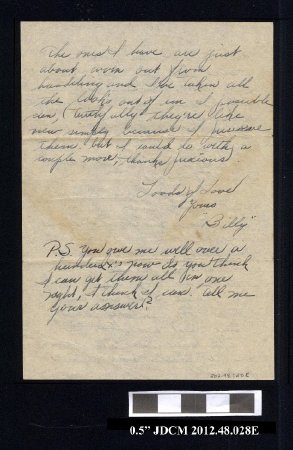 The ones I have are just
about worn out from
handling and I've taken all
the looks out of 'em I possible
can, (really they're like
new simply because I treasure
them. but I could do with a
couple more, thanks precious)
Loads of Love
Yours
"Billy"
P.S. You owe me well over a
hundred x's now do you think
I can get them all in one
night, I think I can. Tell me
your answer?
0.5" JDCM 2012.48.028E